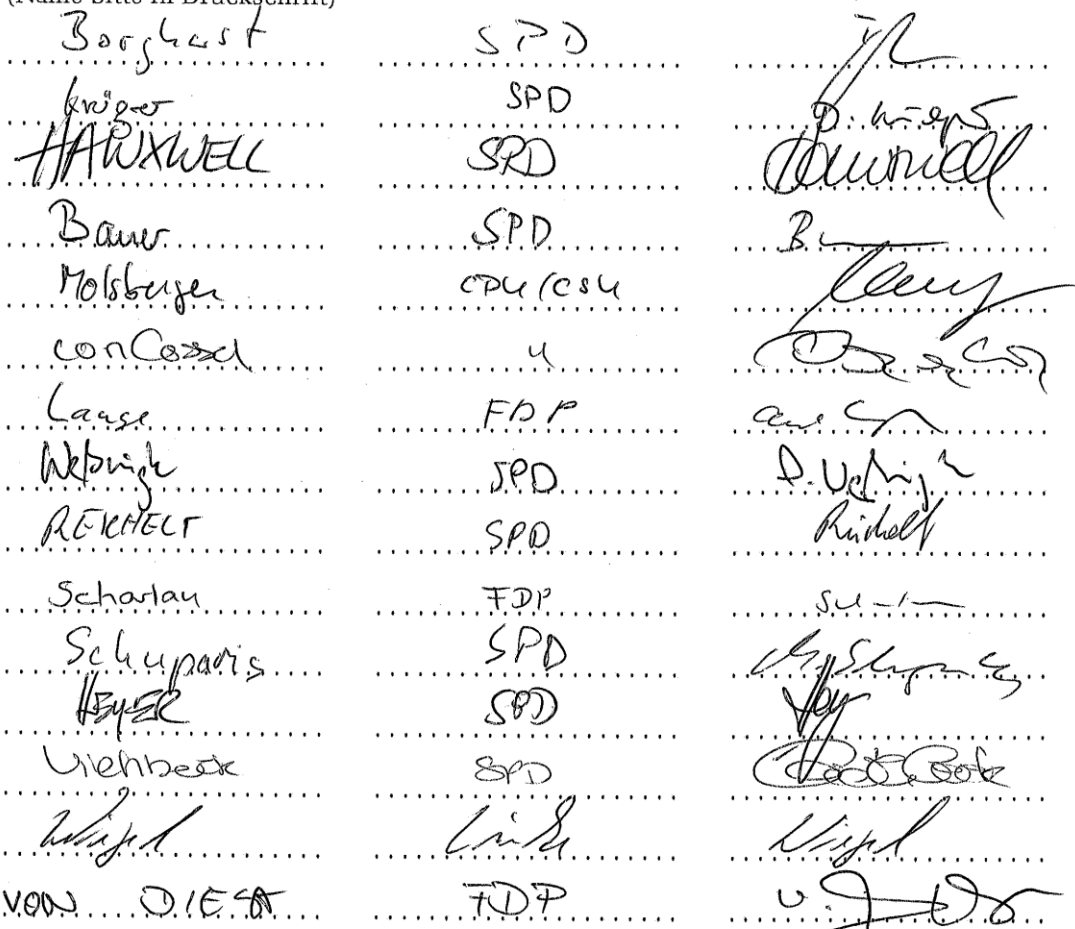 (Name bitte in Druckschrift)
Borghorst SPD
Krüger SPD D. Krüger
HAWXWELL SPD Hawxwell
Bauer SPD
Molsberger CDU/CSU
von Cossel "
Laase FDP
Weßnigk SPD D. Weßnigk
REICHELT SPD Reichelt
Scharlau FDP
Schuparis SPD
HEYER SPD Hey
Viehbeck SPD
Wiegel Linke Wiegel
VON DIEST FDP